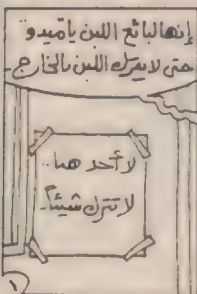 إنها لبائع اللبن يا تميدو
حتى لا يترك اللبن بالخارج
لا أحد هنا..
لا تترك شيئاً.
١